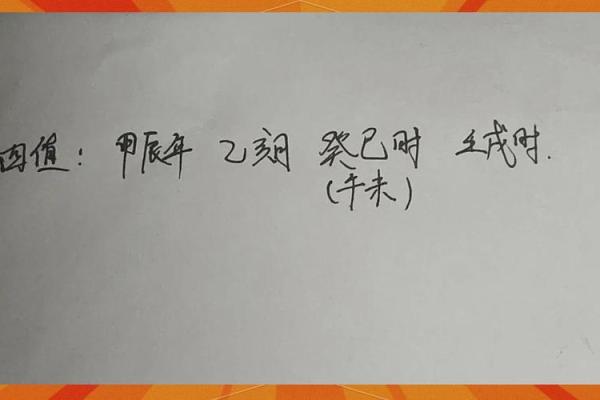 因值：甲辰年 乙亥月 癸巳时 壬戌时.
(午未)